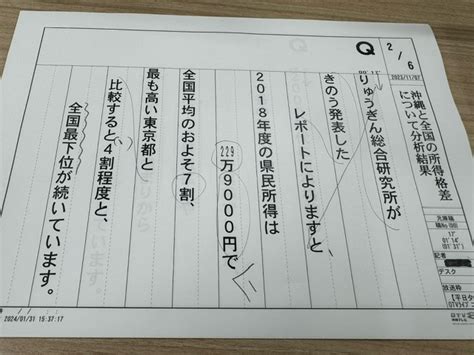 沖縄と全国の所得格差
について分析結果
元原稿
稿No(00)
17'
01'14"
(01'37")
記者
デスク
放送枠
2/6
2023/11/07
Q
00'12"
りゅうぎん総合研究所が
きのう発表した
レポートによりますと、
2018年度の県民所得は
229万9000円で
全国平均のおよそ7割、
最も高い東京都と
比較すると4割程度と、
全国最下位が続いています。
2024/01/31 15:37:17